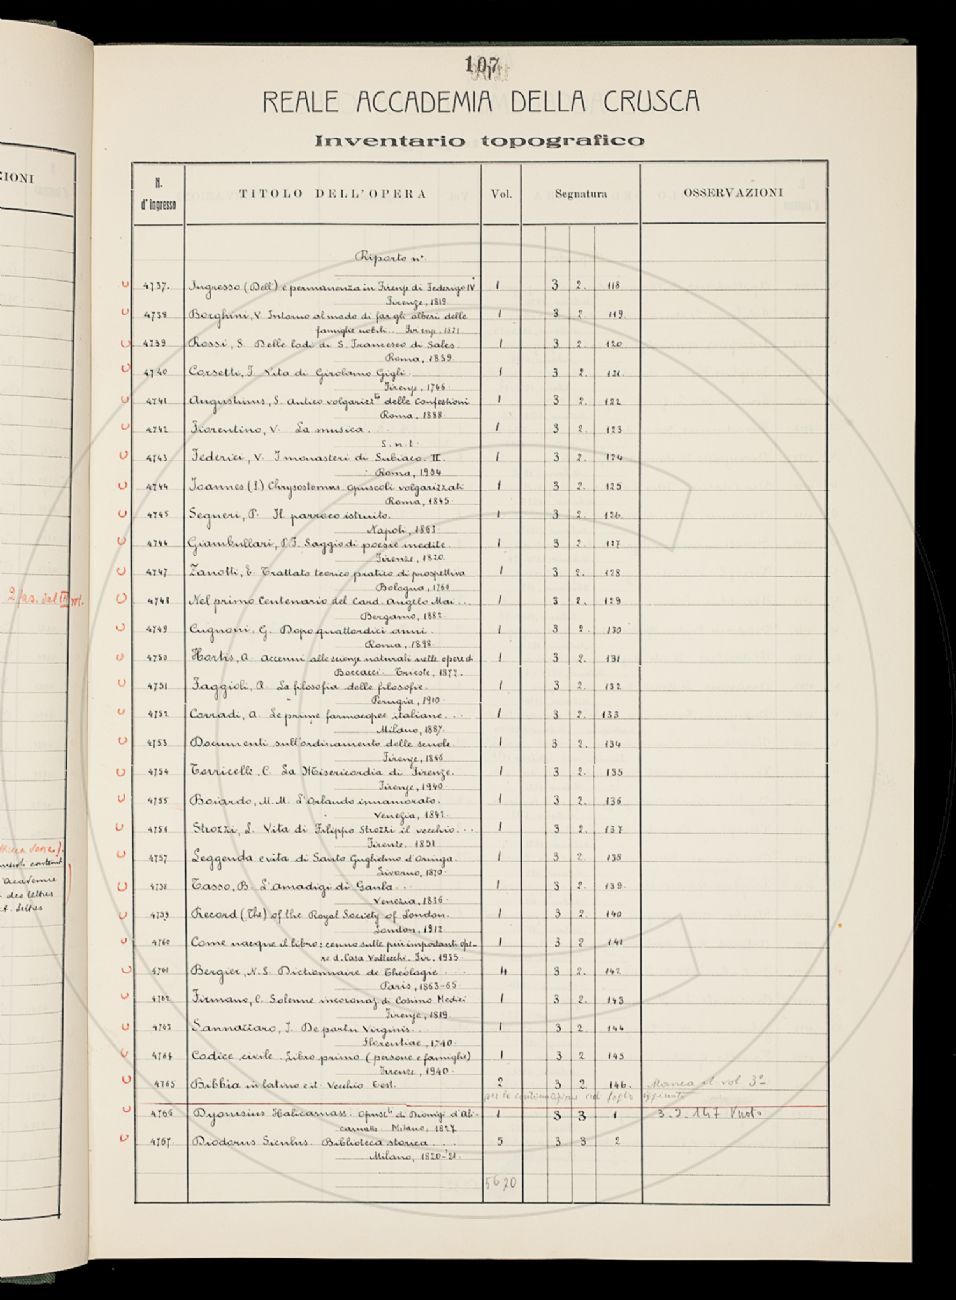 107
REALE ACCADEMIA DELLA CRUSCA
Inventario topografico
N. d'Ingresso TITOLO DELL'OPERA Vol. Segnatura OSSERVAZIONI
Riporto n.
4737. Ingresso (Dell') e permanenza in Firenze di Federigo IV 1 3 2. 118
Firenze, 1819.
4738 Borghini, V. Intorno al modo di far gli alberi delle 1 3 2 119.
famiglie nobili.. Firenze, 1821.
4739 Rossi, S. Delle lodi di S. Francesco di Sales. 1 3 2. 120
Roma, 1859.
4740 Corsetti, F. Vita di Girolamo Gigli. 1 3 2. 121
Firenze, 1746.
4741 Augustinus, S. Antico volgarizz.to delle Confessioni 1 3 2. 122
Roma, 1888.
4742 Fiorentino, V. La musica. 1 3 2. 123
S. n. t.
4743 Federici, V. I monasteri di Subiaco. II. 1 3 2. 124
Roma, 1904
4744 Joannes (S.) Chrysostomus. Opuscoli volgarizzati 1 3 2. 125
Roma, 1845.
4745 Segneri, P. Il parroco istruito. 1 3 2. 126.
Napoli, 1863
4746 Giambullari, P. F. Saggio di poesie inedite. 1 3 2. 127
Firenze, 1820.
4747. Zanotti, E. Trattato teorico pratico di prospettiva 1 3 2. 128
Bologna, 1766
4748 Nel primo Centenario del Card. Angelo Mai... 1 3 2. 129
Bergamo, 1882.
4749 Cugnoni, G. Dopo quattordici anni. 1 3 2. 130
Roma, 1898.
4750 Hortis, A. Accenni alle scienze naturali nelle opere di 1 3 2. 131
Boccacci. Trieste, 1877.
4751 Faggioli, A. La filosofia delle filosofie. 1 3 2. 132
Perugia, 1910.
4752 Corradi, A. Le prime farmacopee italiane... 1 3 2. 133
Milano, 1887.
4753 Documenti sull'ordinamento delle scuole 1 3 2. 134
Firenze, 1846
4754 Torricelli, C. La Misericordia di Firenze. 1 3 2. 135
Firenze, 1940.
4755 Boiardo, M. M. L'Orlando innamorato. 1 3 2. 136
Venezia, 1842.
4756 Strozzi, L. Vita di Filippo Strozzi il vecchio... 1 3 2. 137
Firenze, 1851
4757 Leggenda e vita di Santo Guglielmo d'Oringa. 1 3 2. 138
Livorno, 1870.
4758 Tasso, B. L'Amadigi di Gaula... 1 3 2. 139.
Venezia, 1836.
4759 Record (The) of the Royal Society of London. 1 3 2. 140
London, 1912.
4760 Come nacque il libro: cenno sulle più importanti ope- 1 3 2 141
re d. Casa Vallecchi. Fir. 1935.
4761 Bergier, N. S. Dictionnaire de Théologie... 4 3 2. 142
Paris, 1863-65
4762 Firmano, C. Solenne incoronaz. di Cosimo Medici 1 3 2. 143
Firenze, 1819.
4763 Sannazaro, J. De partu Virginis.. 1 3 2 144
Florentiae, 1740.
4764 Codice civile. Libro primo (persone e famiglie) 1 3 2 145
Firenze, 1940.
4765 Bibbia in latino e it. Vecchio Test. 2 3 2. 146. Manca il vol 3º
per la continuazione ved. foglio aggiunto
4766 Dyonisius Halicarnass. Opusc.li di Dionigi d'Ali- 1 3 3 1 3. 2. 147 Vuoto
carnasso. Milano, 1827.
4767. Diodorus Siculus. Biblioteca storica.... 5 3 3 2
Milano, 1820-'21.
5620